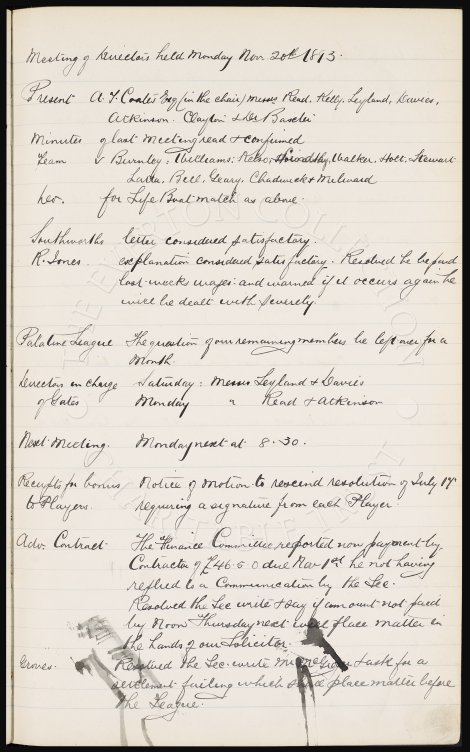 Meeting of Directors held Monday Nov. 20th 1893.
Present A. T. Coates Esq (in the chair) Messrs Read, Kelly, Leyland, Davies,
Atkinson. Clayton & Dr Baxter
Minutes of last meeting read & confirmed
Team v Burnley, Williams, Kelso, Howarth, Walker, Holt, Stewart
Latta, Bell, Geary, Chadwick & Milward
do. for Life Boat match as above.
Southworths letter considered satisfactory.
R. Jones. explanation considered satisfactory. Resolved he be paid
last weeks wages and warned if it occurs again he
will be dealt with severely.
Palatine League The question of our remaining members be left over for a
month
Directors in charge Saturday: Messrs Leyland & Davies
of Gates Monday " Read & Atkinson
Next Meeting. Monday next at 8.30.
Receipts for bonus Notice of motion to rescind resolution of July 17
to Players. requiring a signature from each Player.
Adv. Contract The Finance Committee reported non payment by
Contractor of £46.5.0 due Nov 1st he not having
replied to a Communication by the Sec.
Resolved the Sec write & say if amount not paid
by Noon Thursday next will place matter in
the hands of our Solicitor.
Groves. Resolved the Sec. write & ask for a
settlement failing which place matter before
the League.
THE EVERTON COLLECTION